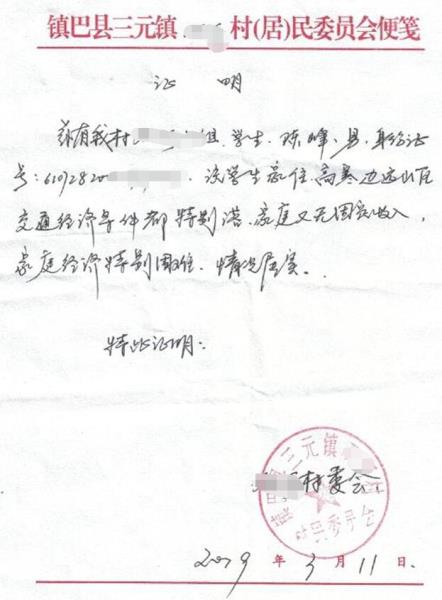 镇巴县三元镇 村(居)民委员会便笺
证 明
兹有我村 组,学生,陈峰,男,身份证
号:6109282 ,该学生家住,高寒边远山区
交通经济条件都特别落,家庭又无固定收入,
家庭经济特别困难.情况属实。
特此证明:
三元镇
村委会
村民委员会
2019年3月11日.